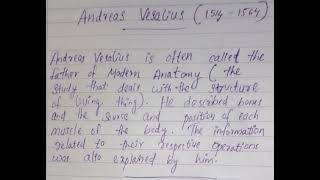 Andreas Vesalius (1514-1564)
Andreas Vesalius is often called the
father of Modern Anatomy (the
study that deals with the structure
of living thing). He described bones
and the and position of each
muscle of the body. The information
related to their respective operations
was also explained by him.